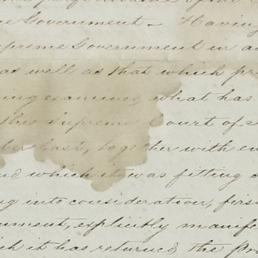 Government - Having
Supreme Government in a
as well as that which pr
ing examined what has
this Supreme Court of
ber last, together with
nd which it was fitting
ng into consideration, firs
ument, explicitly manif
ich it has returned the Pro